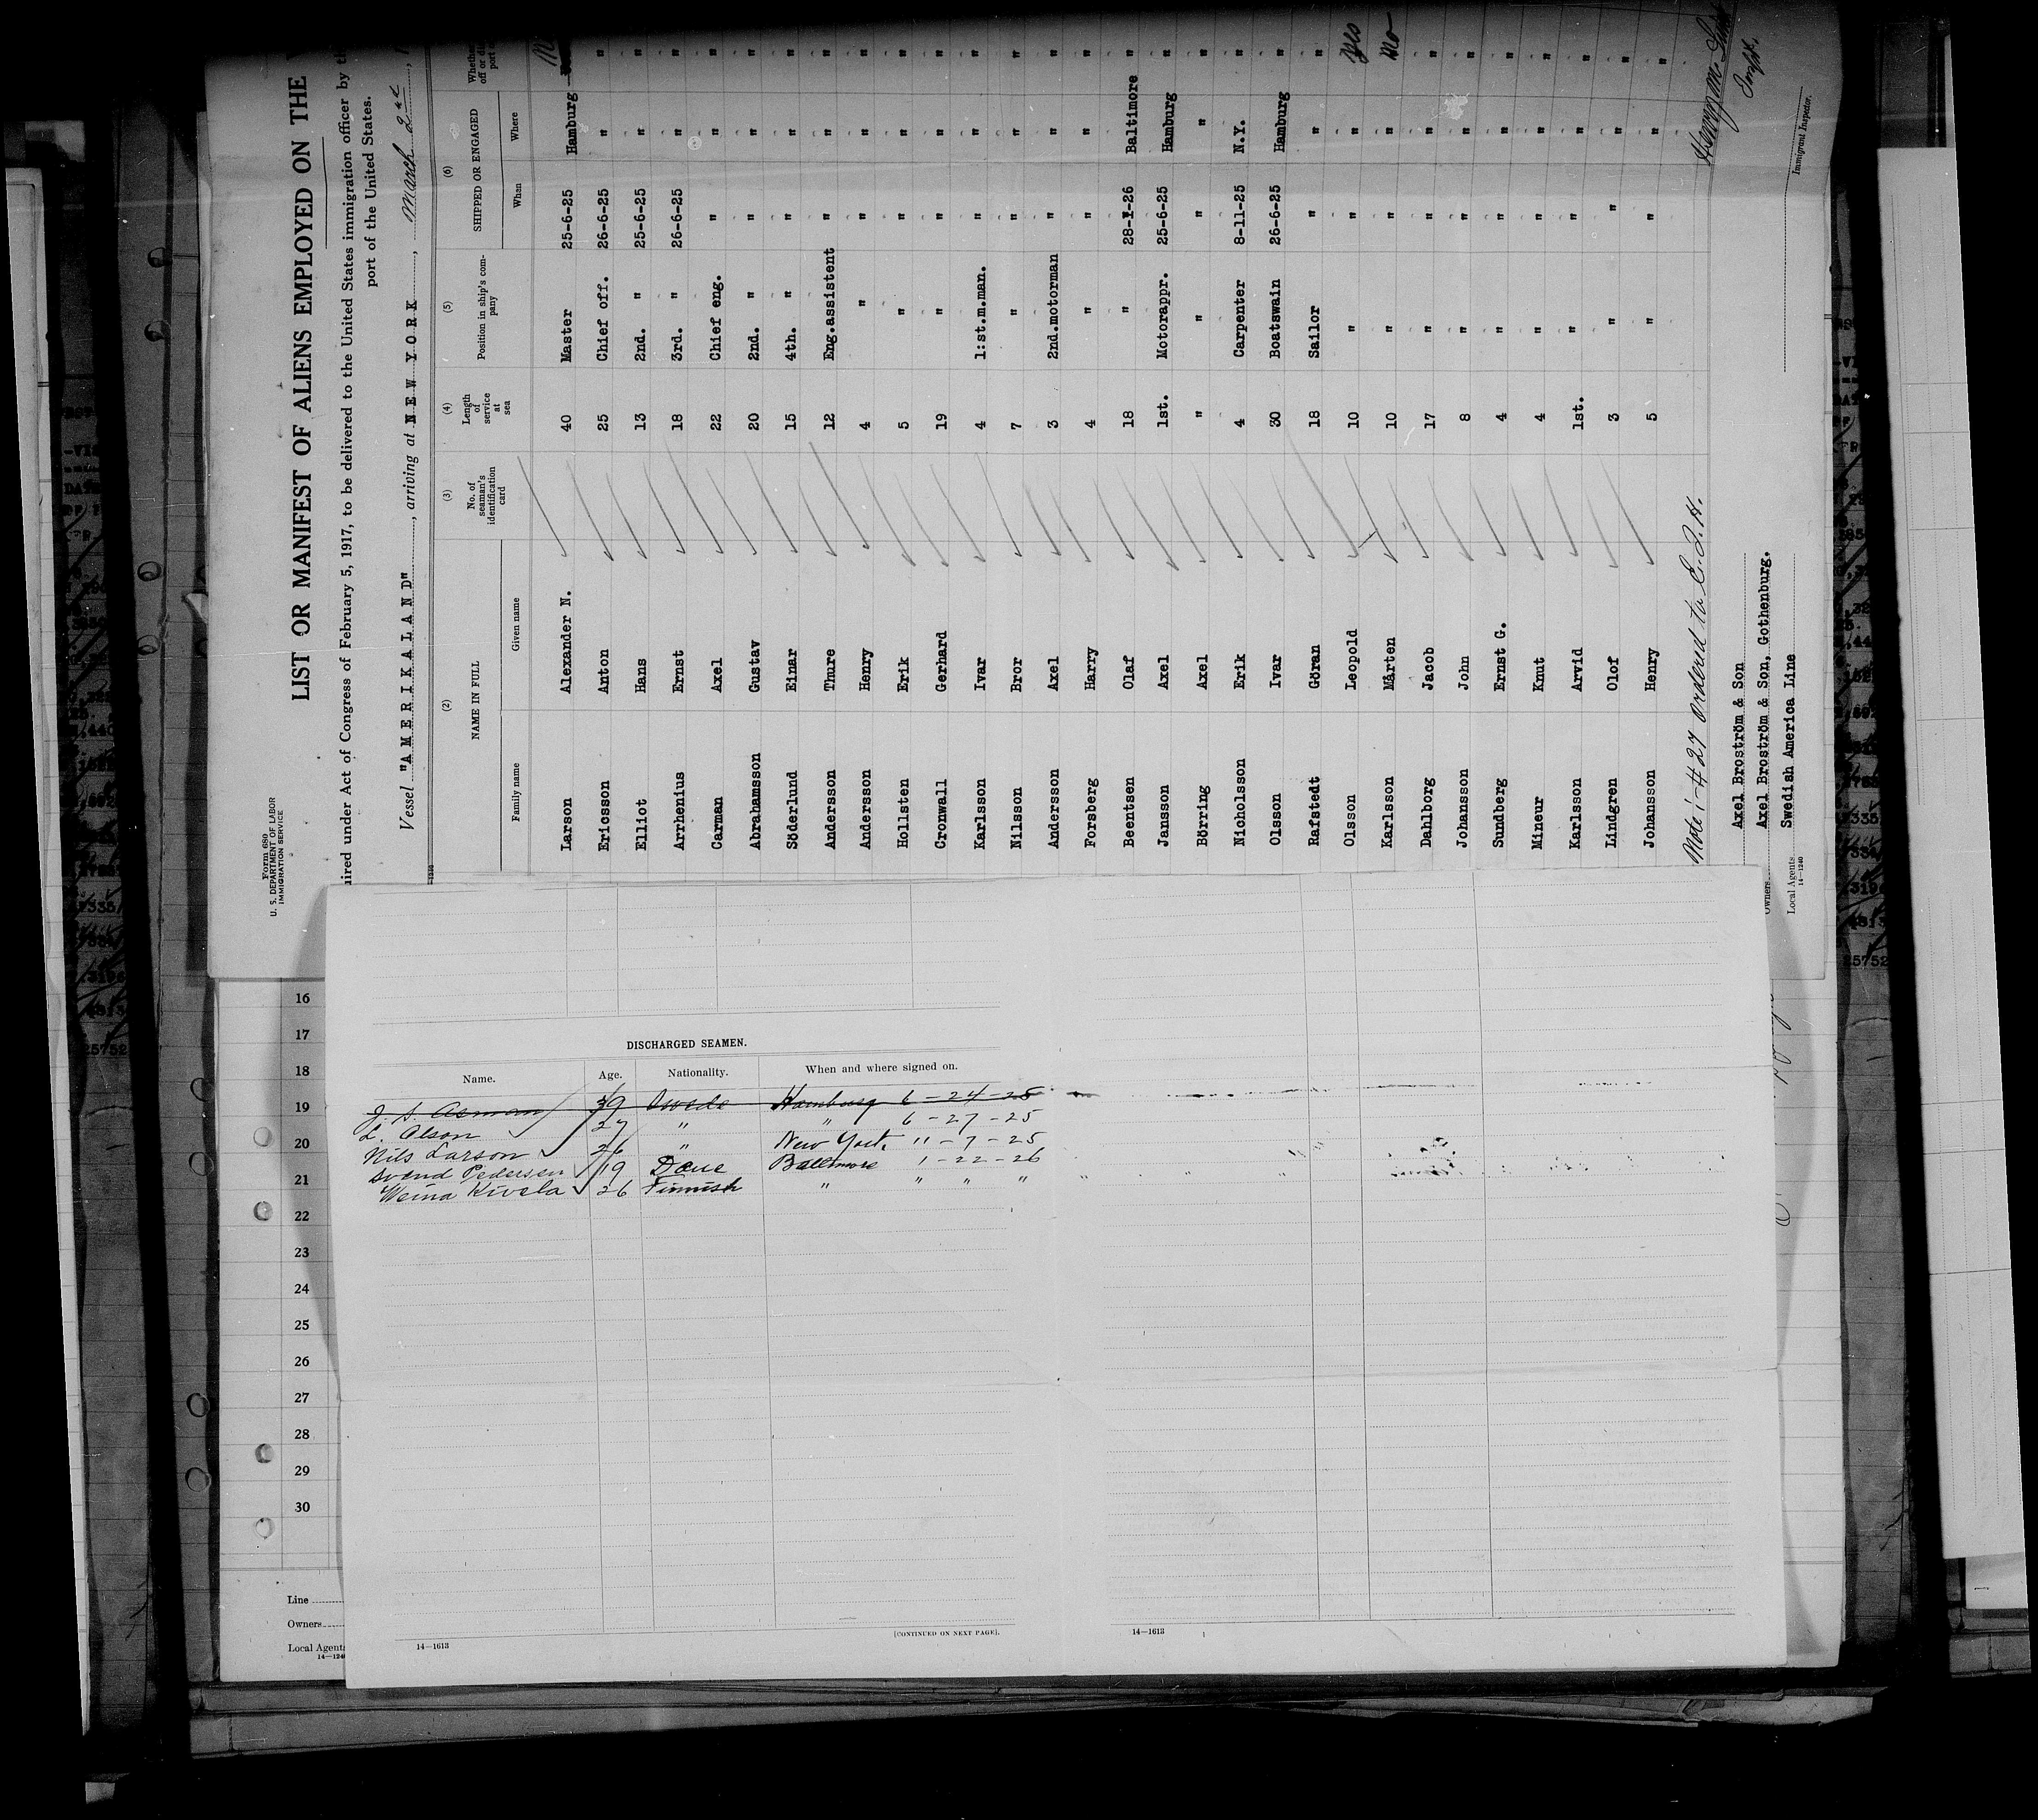 Form 680
U. S. DEPARTMENT OF LABOR
IMMIGRATION SERVICE
LIST OR MANIFEST OF ALIENS EMPLOYED ON THE
uired under Act of Congress of February 5, 1917, to be delivered to the United States immigration officer by th
port of the United States.
Vessel "AMERIKALAND", arriving at NEW YORK, March 2nd
(2) (3) (4) (5) (6)
NAME IN FULL No. of seaman's identification card Length of service at sea Position in ship's company SHIPPED OR ENGAGED
Family name Given name When Where
Larson Alexander N. 40 Master 25-6-25 Hamburg
Ericsson Anton 25 Chief off. 26-6-25 "
Elliot Hans 13 2nd. " 25-6-25 "
Arrhenius Ernst 18 3rd. " 26-6-25 "
Carman Axel 22 Chief eng. " "
Abrahamsson Gustav 20 2nd. " " "
Söderlund Einar 15 4th. " " "
Andersson Thure 12 Eng.assistent " "
Andersson Henry 4 " " "
Hollsten Erik 5 " " "
Cronwall Gerhard 19 " " "
Karlsson Ivar 4 1:st.m.man. " "
Nilsson Bror 7 " " "
Andersson Axel 3 2nd.motorman " "
Forsberg Harry 4 " " "
Beentsen Olaf 18 " 28-1-26 Baltimore
Jansson Axel 1st. Motorappr. 25-6-25 Hamburg
Börring Axel " " " "
Nicholsson Erik 4 Carpenter 8-11-25 N.Y.
Olsson Ivar 30 Boatswain 26-6-25 Hamburg
Rafstedt Göran 18 Sailor " "
Olsson Leopold 10 " " " Yes
Karlsson Mårten 10 " " " No
Dahlborg Jacob 17 " " " "
Johansson John 8 " " " "
Sundberg Ernst G. 4 " " " "
Mineur Knut 4 " " " "
Karlsson Arvid 1st. " " " "
Lindgren Olof 3 " " " "
Johansson Henry 5 " " " "
Note: #27 ordered to E.I.H.
Axel Broström & Son
Owners Axel Broström & Son, Gothenburg.
Local Agents Swedish America Line
14—1240
Immigrant Inspector.
16
17
18
19
20
21
22
23
24
25
26
27
28
29
30
Line
Owners
Local Agents
14—1240
DISCHARGED SEAMEN.
Name. Age. Nationality. When and where signed on.
J A Asman 39 Swede Hamburg 6-24-25
L. Olson 27 " " 6-27-25
Nils Larson 26 " New York, 11-7-25
Svend Pedersen 19 Dane Baltimore 1-22-26
Weino Kivela 26 Finnish " " " "
14—1613
[CONTINUED ON NEXT PAGE].
14—1613